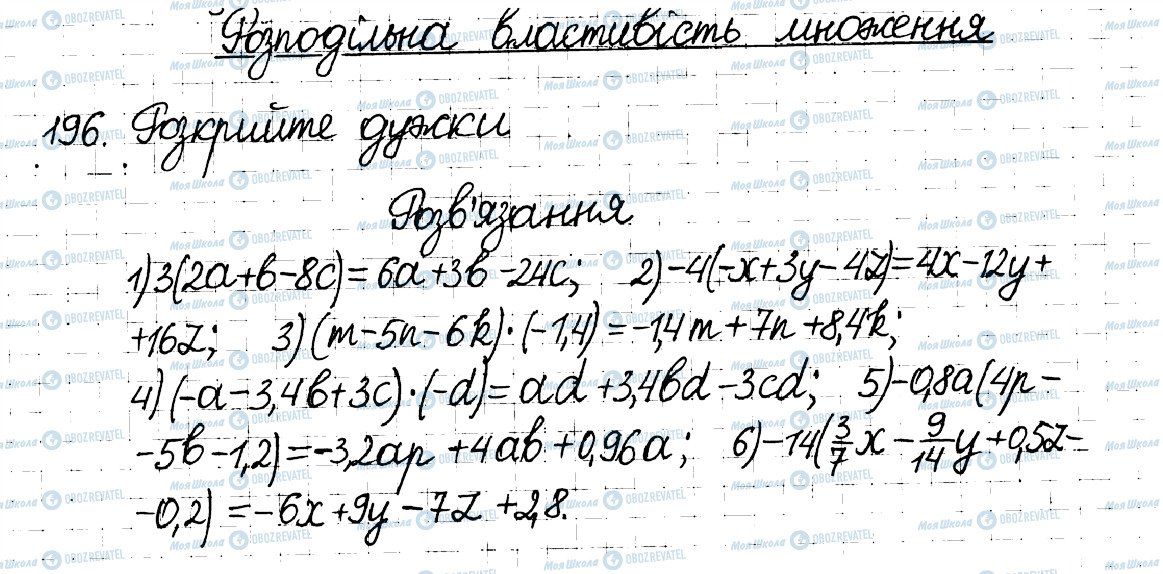 Розподільна властивість множення
196. Розкрийте дужки
Розв'язання
1) 3(2a+b-8c)=6a+3b-24c; 2) -4(-x+3y-4z)=4x-12y+
+16z; 3) (m-5n-6k)·(-1,4)=-1,4m+7n+8,4k;
4) (-a-3,4b+3c)·(-d)=ad+3,4bd-3cd; 5) -0,8a(4p-
-5b-1,2)=-3,2ap+4ab+0,96a; 6) -14(3/7x-9/14y+0,5z-
-0,2)=-6x+9y-7z+2,8.